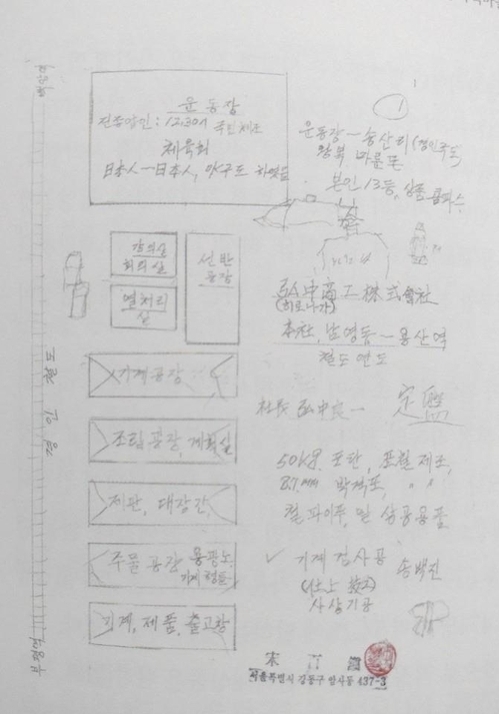 운동장
전종업인: 12.30시 국민체조
체육회
日本人—日本人, 야구도 하였음
운동장—송산리(경인국도)
왕복 마를돈
본인 13등, 상품 콤파스
강의실
회의실
열처리
실
선반
공장
弘中商工株式會社
(히로나카)
本社, 남영동—용산역
철도 연도
기계공장
조립공장, 계획실
제판, 대장간
주물공장 용광로
기계, 제품, 출고장
社長 弘中良一
定盤
50kg 포탄, 포탄 제조,
박격포, 〃 〃
철 파이프, 일 상공용품
✓ 기계 검사공 송백진
(仕上 技工)
사상기공
서울특별시 강동구 암사동 437-3